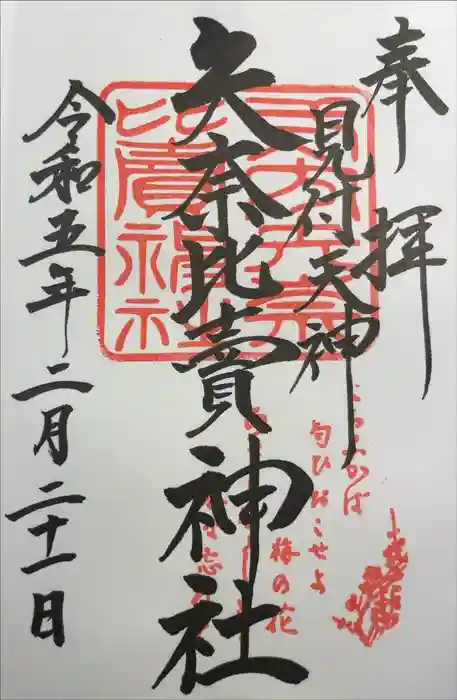 奉拝
見付天神
矢奈比賣神社
令和五年二月二十一日
匂ひおこせよ
梅の花